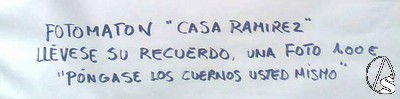 FOTOMATON "CASA RAMIREZ"
LLÉVESE SU RECUERDO, UNA FOTO 1.00 €
"PÓNGASE LOS CUERNOS USTED MISMO"